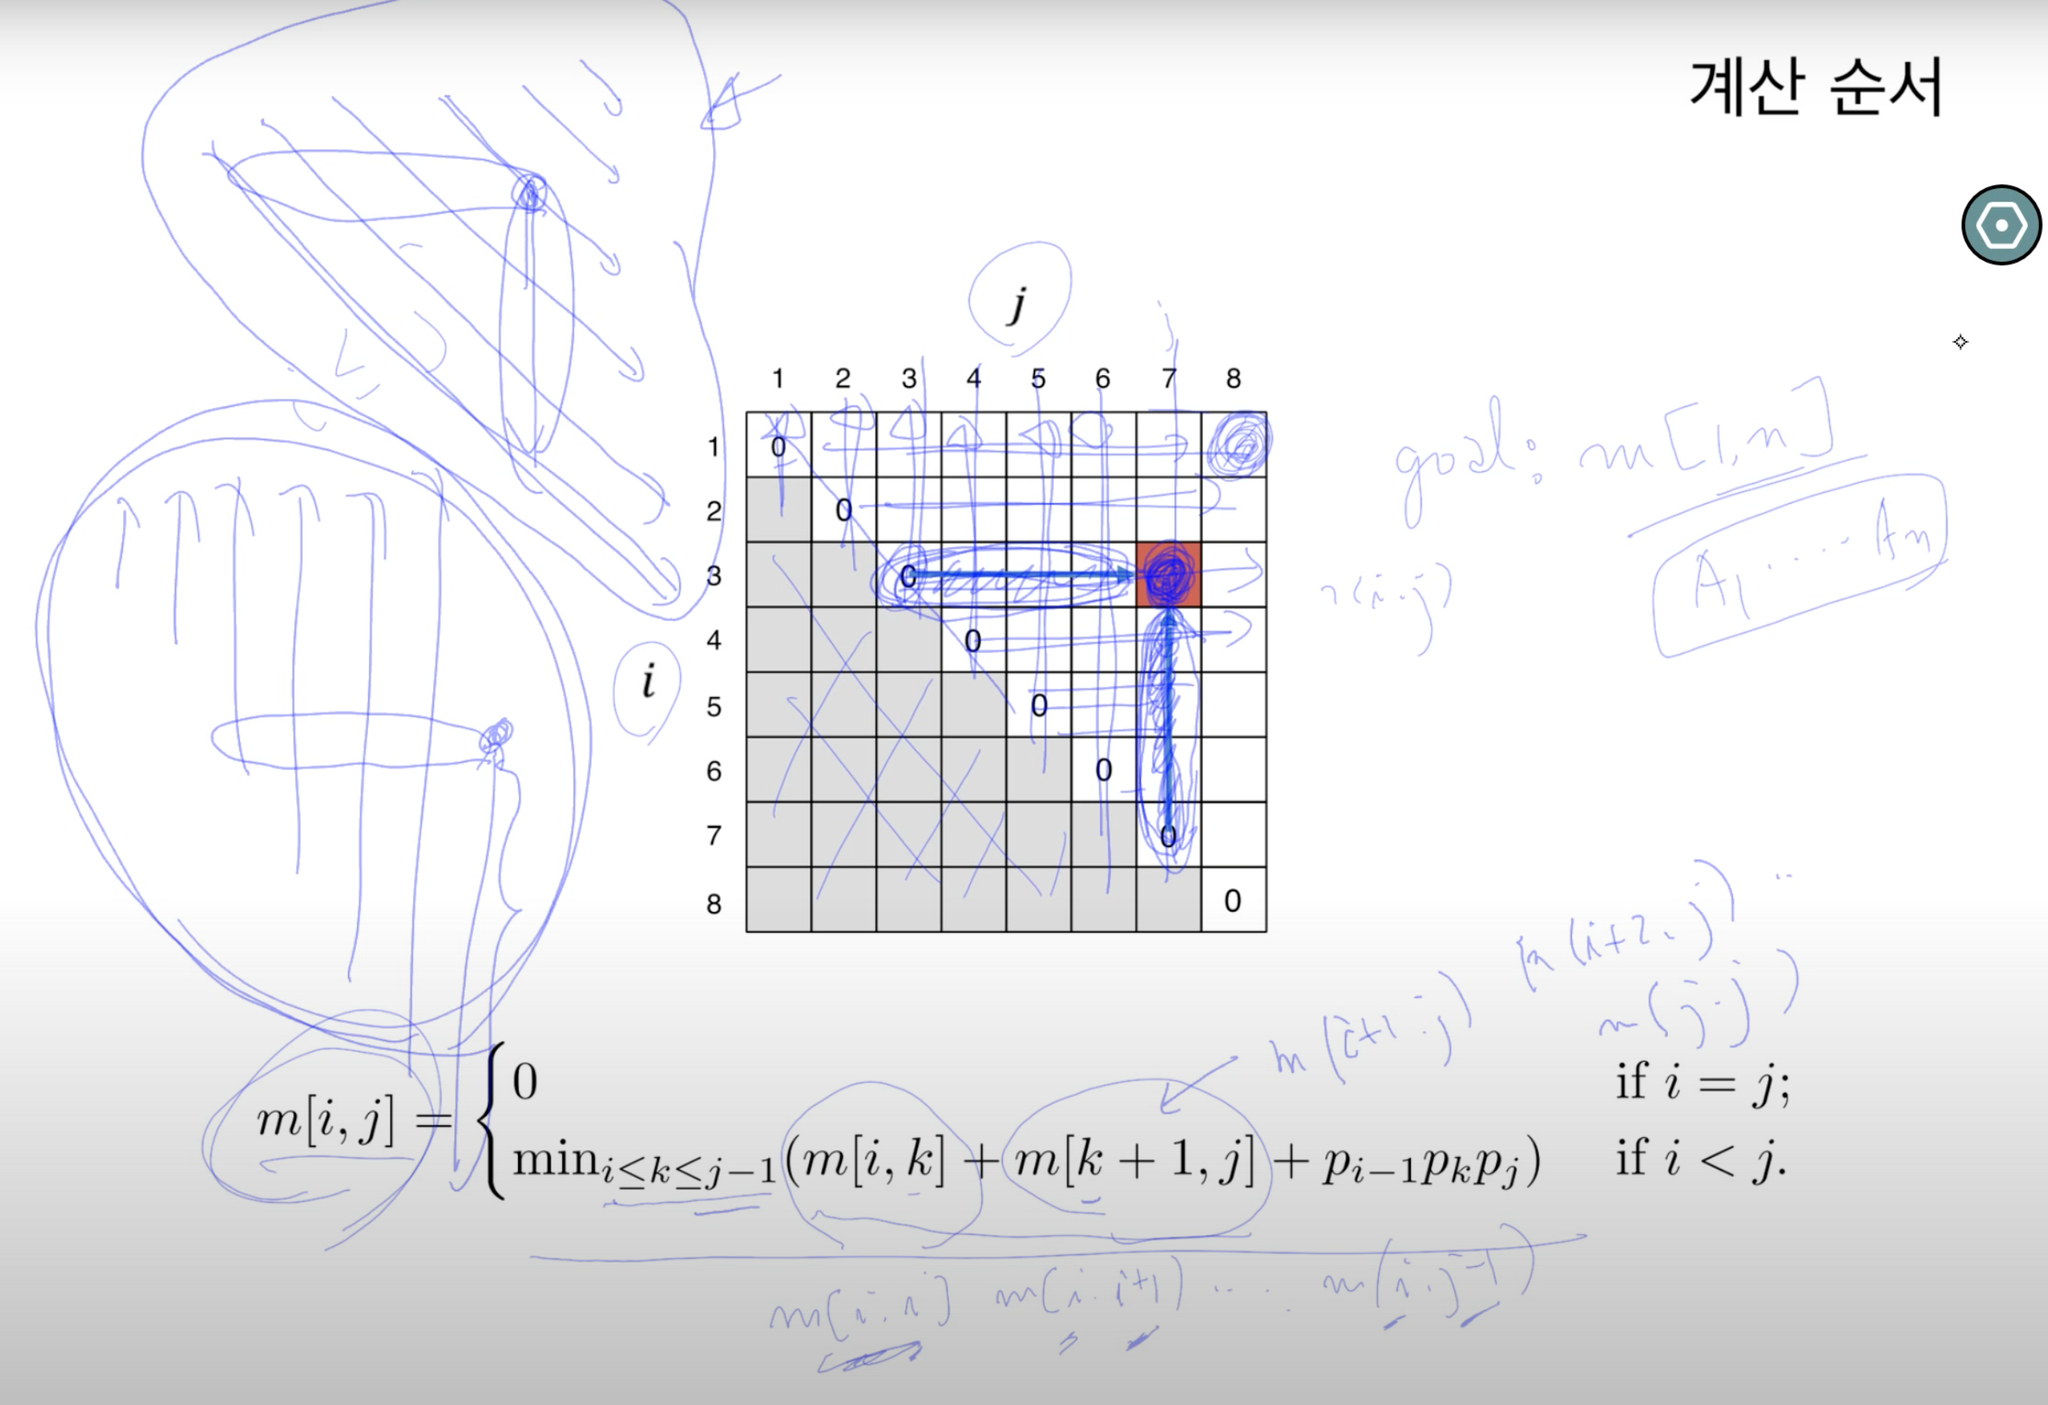 계산 순서
j
j
1 2 3 4 5 6 7 8
1 0
2 0
3 0
4 0
5 0
6 0
7 0
8 0
i
goal: m[1,n]
A1 ···· An
(i.j)
m(i+2, j) ··
m(i+1.j)
m(j.j)
m[i, j] =
0 if i = j;
min i≤k≤j−1 (m[i, k] + m[k + 1, j] + pi−1pkpj) if i < j.
m[i,i] m(i.i+1) ···· m(i.j-1)